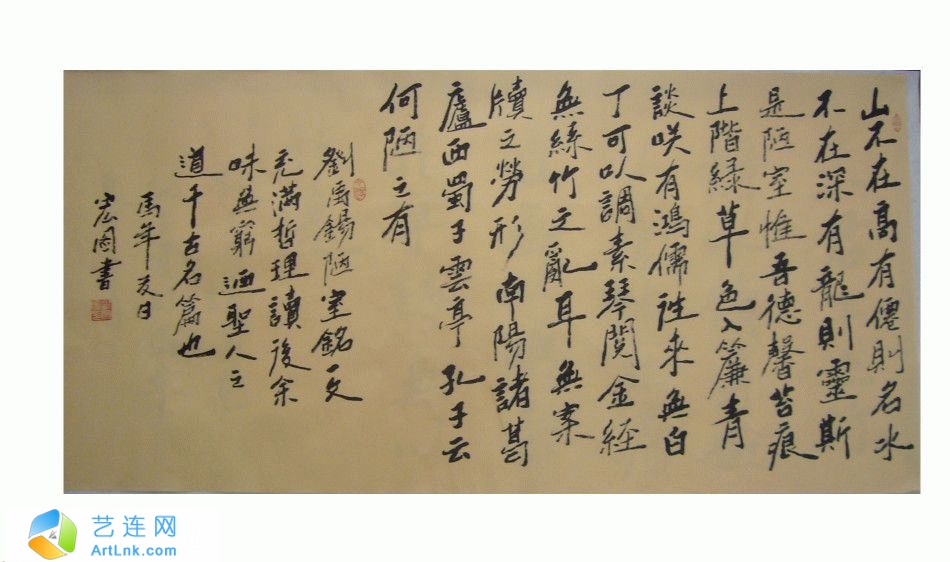 山不在高有僊則名水
不在深有龍則靈斯
是陋室惟吾德馨苔痕
上階緑草色入簾青
談咲有鴻儒往来無白
丁可以調素琴閲金経
無絲竹之亂耳無案
牘之勞形南陽諸葛
廬西蜀子雲亭孔子云
何陋之有
劉禹錫陋室銘一文
充滿哲理讀後余
味無窮迺聖人之
道千古名篇也
馬年夏日
宏图書
艺连网
ArtLnk.com